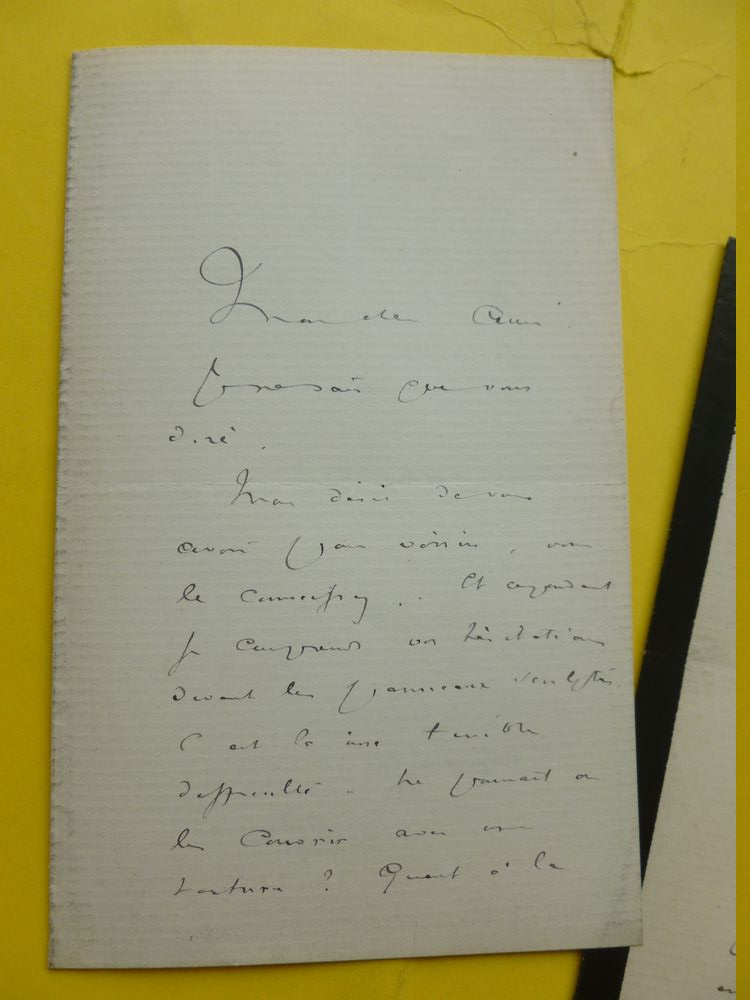 Mon cher ami
Je ne sais que vous
dire.
Mon désir de vous
avoir pour voisin, vous
le connaissez.. Et cependant
je comprends vos hésitations
devant les panneaux sculptés
C est là une terrible
difficulté. Ne pourrait on
les couvrir avec une
tenture ? Quant à la